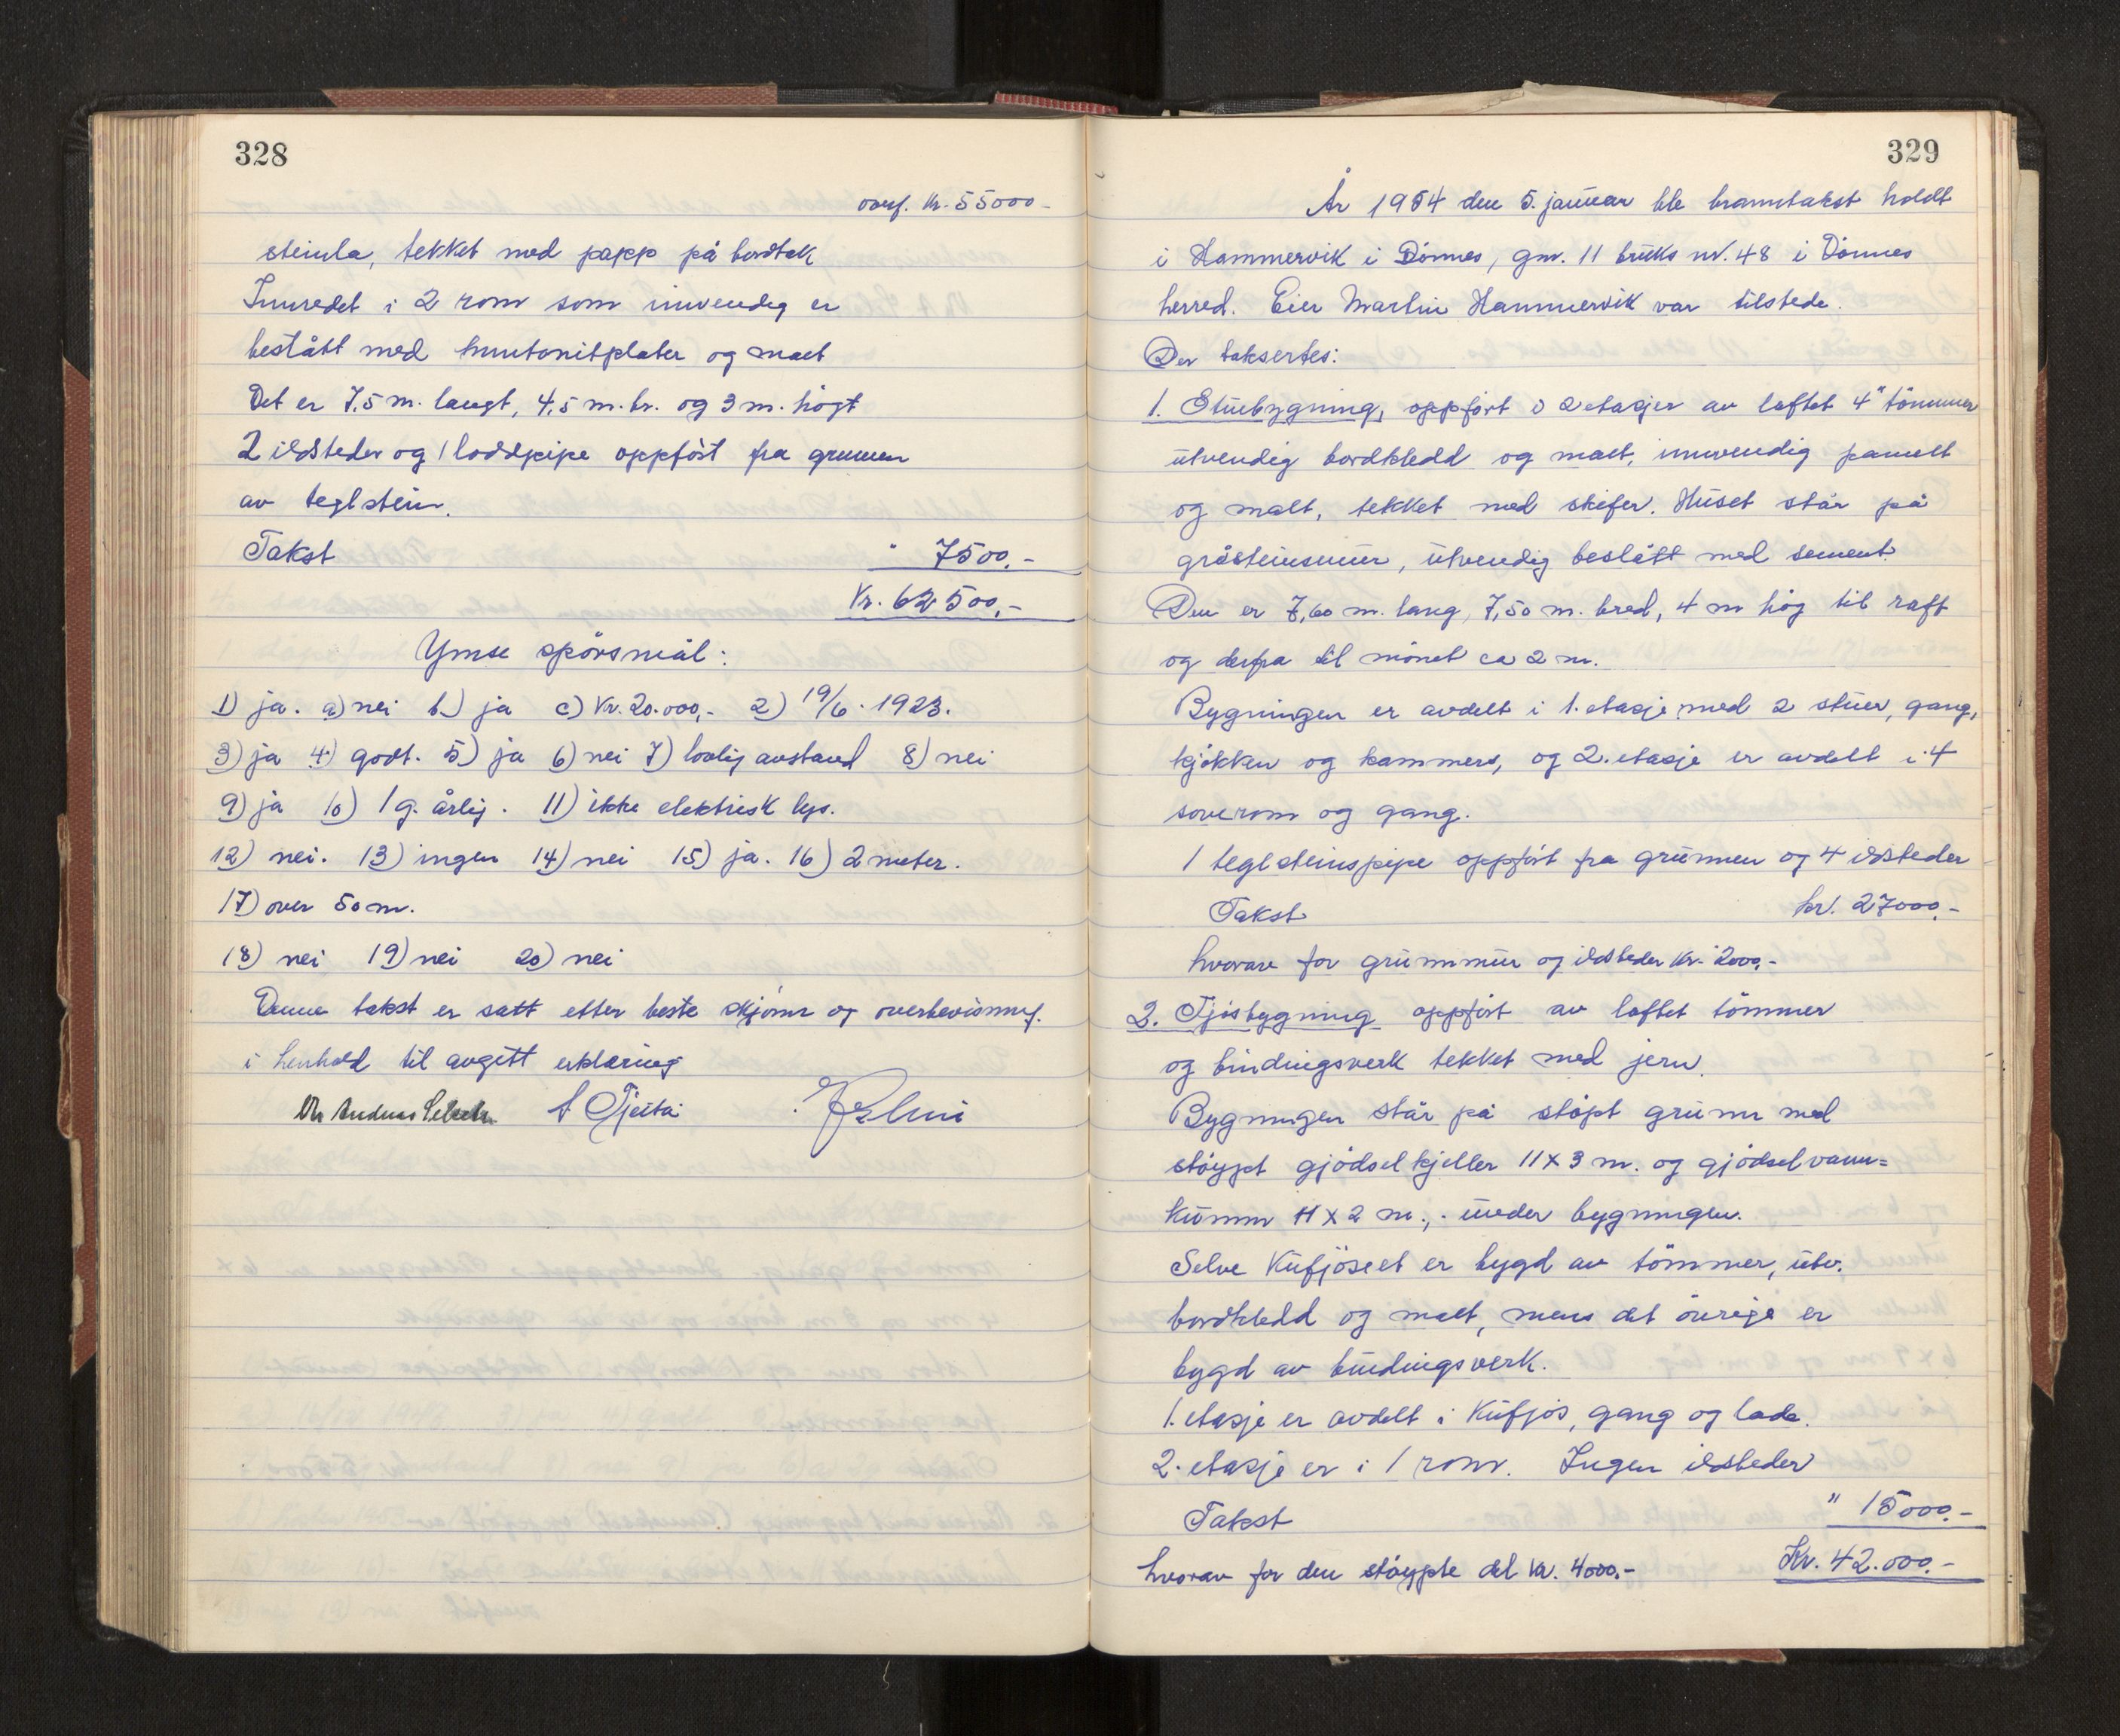 328
overf. Kr. 55000-
steinla, tekket med papp på bordtak
Innredet i 2 rom som innvendig er
beslått med huntonitplater og malt
Det er 7,5 m. langt, 4,5 m. br. og 3 m. högt
2 ildsteder og 1 loddpipe oppfört fra grunnen
av teglstein.
Takst " 7500.-
Kr. 62500,-
Ymse spörsmål:
1) ja. a) nei b) ja c) Kr. 20.000,- 2) 19/6. 1923.
3) ja 4) godt. 5) ja 6) nei 7) lovlig avstand 8) nei
9) ja 10) 1 g. årlig. 11) ikke elektrisk lys.
12) nei. 13) ingen 14) nei 15) ja. 16) 2 meter.
17) over 50 m.
18) nei 19) nei 20) nei
Denne takst er satt etter beste skjönn og overbevisning.
i henhold til avgitt erklæring
A Tjeita
329
År 1954 den 5. januar ble branntakst holdt
i Hammervik i Dönnes, gnr. 11 bruks nr. 48 i Dönnes
herred. Eier Martin Hammervik var tilstede.
Der taksertes:
1. Stuebygning, oppfört i 2 etasjer av laftet 4" tömmer
utvendig bordkledd og malt, innvendig panelt
og malt, tekket med skifer. Huset står på
gråsteinsmur, utvendig beslått med sement.
Den er 7,60 m. lang, 7,50 m. bred, 4 m hög til raft
og derfra til mönet ca 2 m.
Bygningen er avdelt i 1. etasje med 2 stuer, gang,
kjökken og kammers, og 2. etasje er avdelt i 4
soverom og gang.
1 teglsteinspipe oppfört fra grunnen og 4 ildsteder
Takst kr. 27000.-
hvorav for grunnmur og ildsteder Kr. 2000.-
2. Fjösbygning oppfört av laftet tömmer
og bindingsverk tekket med jern.
Bygningen står på stöpt grunn med
stöypt gjödselkjeller 11 X 3 m. og gjödselvann=
kumm 11 X 2 m., - under bygningen.
Selve Kufjöset er bygd av tömmer, utv.
bordkledd og malt, mens det övrige er
bygd av bindingsverk.
1. etasje er avdelt i Kufjös, gang og lade.
2. etasje er i 1 rom. Ingen ildsteder
Takst " 15000.-
hvorav for den stöypte del Kr. 4000.- Kr. 42.000.-